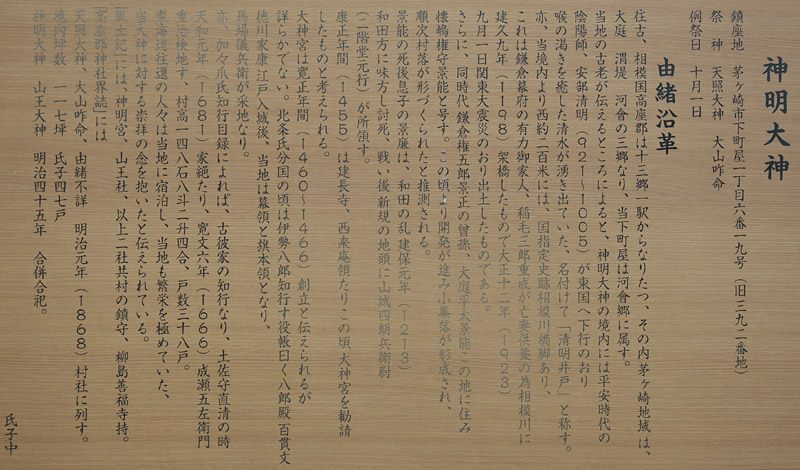 神明大神
鎮座地　茅ヶ崎市下町屋一丁目六番一九号（旧三九二番地）
祭　神　天照大神　大山咋命
例祭日　十月一日
由緒沿革
往古、相模国高座郡は十三郷一駅からなりたつ、その内茅ヶ崎地域は、
大庭　渭堤　河會の三郷なり、当下町屋は河會郷に属す。
当地の古老が伝えるところによると、神明大神の境内には平安時代の
陰陽師、安部清明（９２１～１００５）が東国へ下行のおり
喉の渇きを癒した清水が湧き出ていた、名付けて「清明井戸」と称す。
亦、当境内より西約二百米には、国指定史跡相模川橋脚あり、
これは鎌倉幕府の有力御家人、稲毛三郎重成が亡妻供養の為相模川に
建久九年（１１９８）架橋したもので大正十二年（１９２３）
九月一日関東大震災のおり出土したものである。
さらに、同時代鎌倉権五郎景正の曾孫、大庭平太景能この地に住み
懐嶋権守景能と号す。この頃より開発が進み小集落が形成され、
順次村落が形づくられたと推測される。
景能の死後息子の景廉は、和田の乱建保元年（１２１３）
和田方に味方し討死、戦い後新規の地頭に山城四朗兵衛尉
（二階堂元行）が所領す。
康正年間（１４５５）は建長寺、西来庵領たりこの頃大神宮を勧請
したものと考えられる。
大神宮は寛正年間（１４６０～１４６６）創立と伝えられるが
詳らかでない。北条氏分国の頃は伊勢八郎知行す役帳曰く八郎殿百貫文
徳川家康江戸入城後、当地は幕領と旗本領となり、
馬場儀兵衛が采地なり。
亦、加々爪氏知行目録によれば、古彼家の知行なり、土佐守直清の時
天和元年（１６８１）家絶たり、寛文六年（１６６６）成瀬五左衛門
重治検地す、村高一四八石八斗二升四合、戸数三十八戸。
東海道往還の人々は当地に宿泊し、当地も繁栄を極めていた、
当大神に対する崇拝の念を抱いたと伝えられている。
「風土記」には、神明宮、山王社、以上二社共村の鎮守、柳島善福寺持。
「高座郡神社界誌」には
天照大神　大山咋命、由緒不詳　明治元年（１８６８）村社に列す。
境内坪数　一一七坪　氏子四七戸
神明大神　山王大神　明治四十五年　合併合祀。
氏子中